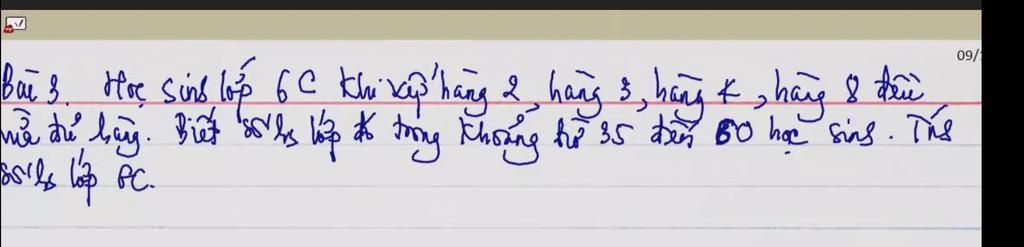 09/
Bài 3. Học sinh lớp 6C khi xếp hàng 2, hàng 3, hàng 4, hàng 8 đều
vừa đủ hàng. Biết số hs lớp đó trong khoảng từ 35 đến 60 học sinh. Tính
số hs lớp 6C.